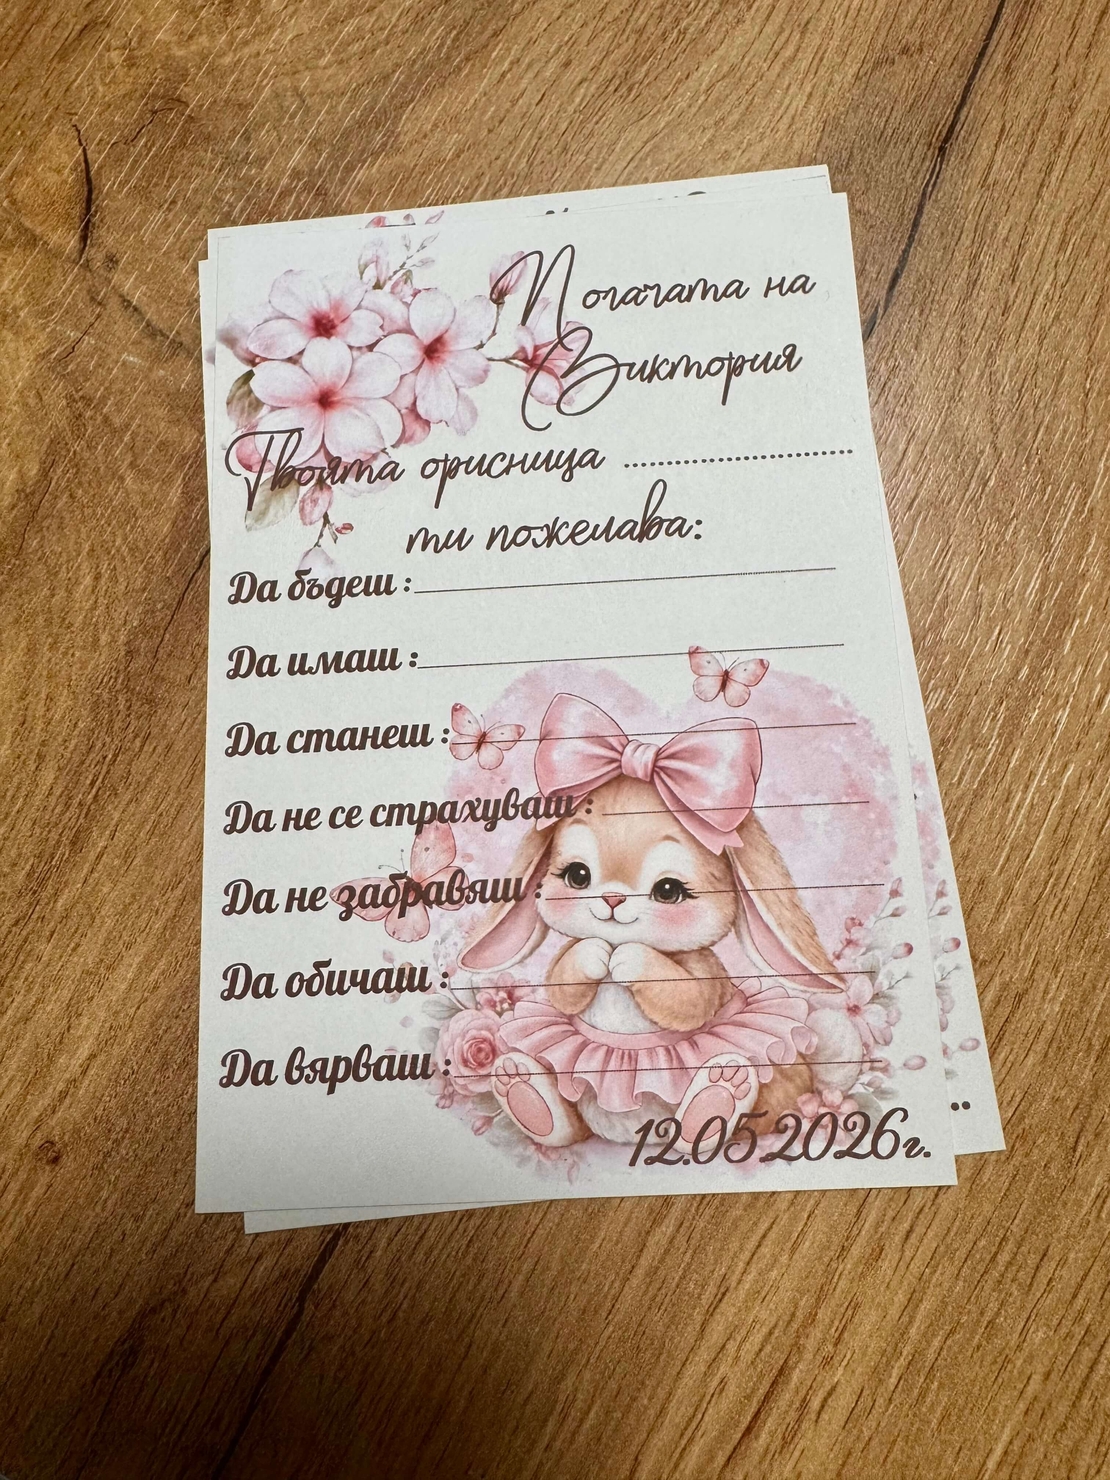 Погачата на
Виктория
Твоята орисница ........................
ти пожелава:
Да бъдеш :
Да имаш :
Да станеш :
Да не се страхуваш :
Да не забравяш :
Да обичаш :
Да вярваш :
12.05.2026г.